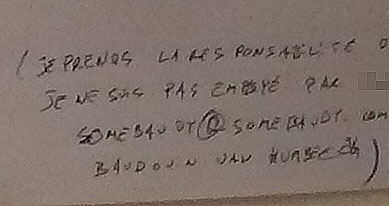 ( JE PRENDS LA RESPONSABILITÉ D
JE NE SUIS PAS EMPLOYÉ PAR
SOMEBAUDY@SOMEBAUDY.COM
BAUDOUIN VAN HUMBEECK)